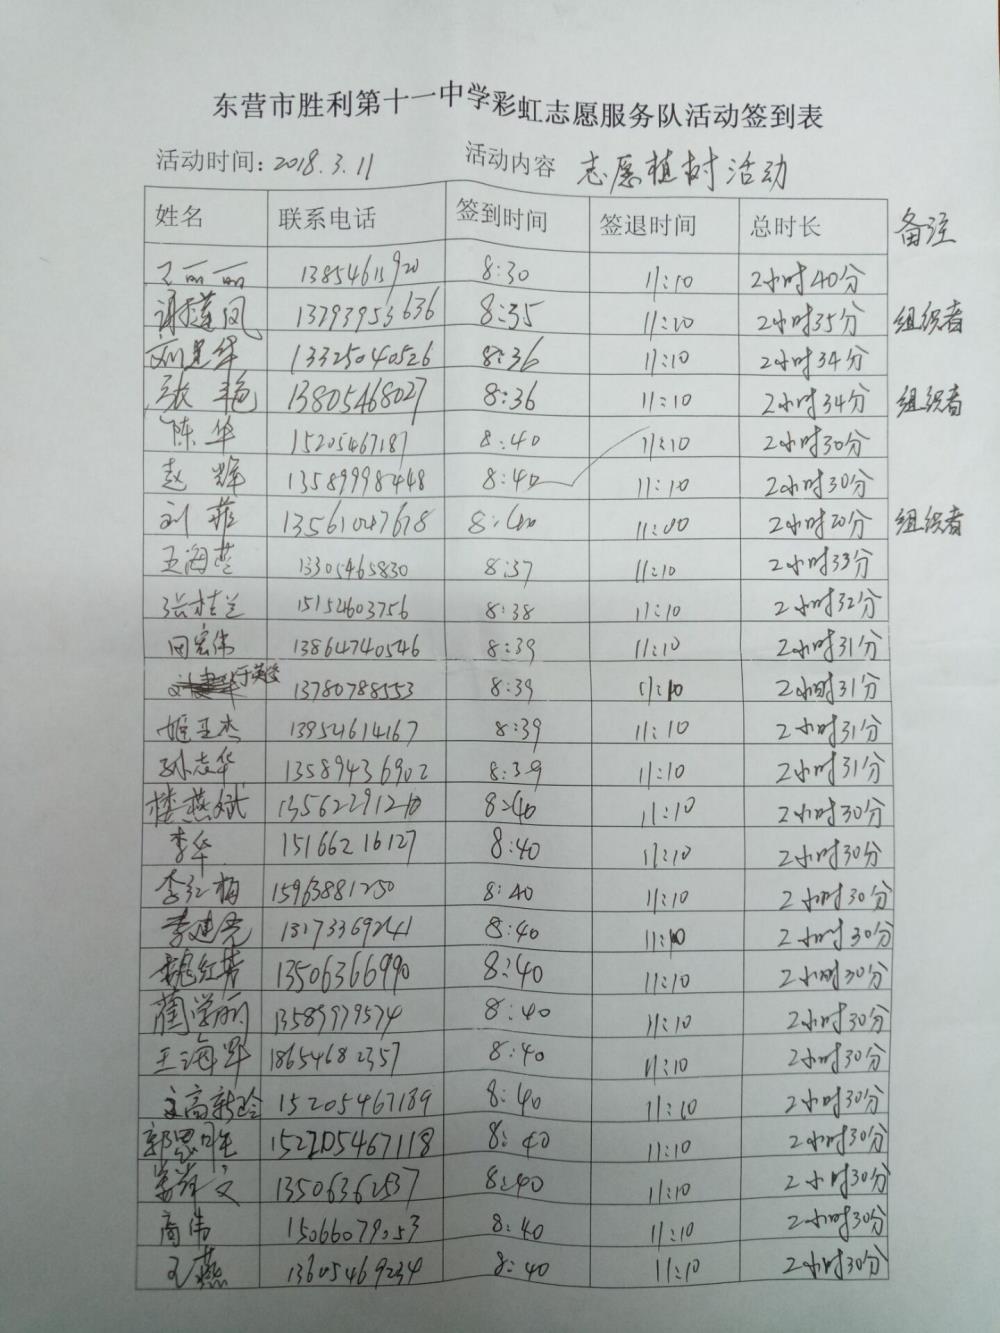 东营市胜利第十一中学彩虹志愿服务队活动签到表
活动时间：2018.3.11 活动内容 志愿植树活动
姓名 联系电话 签到时间 签退时间 总时长 备注
王丽丽 13854611920 8:30 11:10 2小时40分
谢莲凤 13793953636 8:35 11:10 2小时35分 组织者
刘思华 13325040526 8:36 11:10 2小时34分
张艳 13805468027 8:36 11:10 2小时34分 组织者
陈华 15205467187 8:40 11:10 2小时30分
赵辉 13589998448 8:40 11:10 2小时30分
刘菲 13561047678 8:40 11:00 2小时20分 组织者
王海营 13305465830 8:37 11:10 2小时33分
张桂兰 15152603756 8:38 11:10 2小时32分
田宏伟 138647740546 8:39 11:10 2小时31分
于英俊 13780788553 8:39 11:10 2小时31分
姬亚杰 13954614167 8:39 11:10 2小时31分
孙志华 13589436902 8:39 11:10 2小时31分
楼燕斌 13562291210 8:40 11:10 2小时30分
李华 15166216127 8:40 11:10 2小时30分
李红梅 15963881250 8:40 11:10 2小时30分
李建亮 13173369241 8:40 11:10 2小时30分
魏红菁 13506366990 8:40 11:10 2小时30分
蔺学丽 13589979574 8:40 11:10 2小时30分
王海军 18654682357 8:40 11:10 2小时30分
文高新玲 15205467189 8:40 11:10 2小时30分
郭思旺 152705467118 8:40 11:10 2小时30分
13506362537 8:40 11:10 2小时30分
商伟 15066079053 8:40 11:10 2小时30分
王燕 13605469234 8:40 11:10 2小时30分